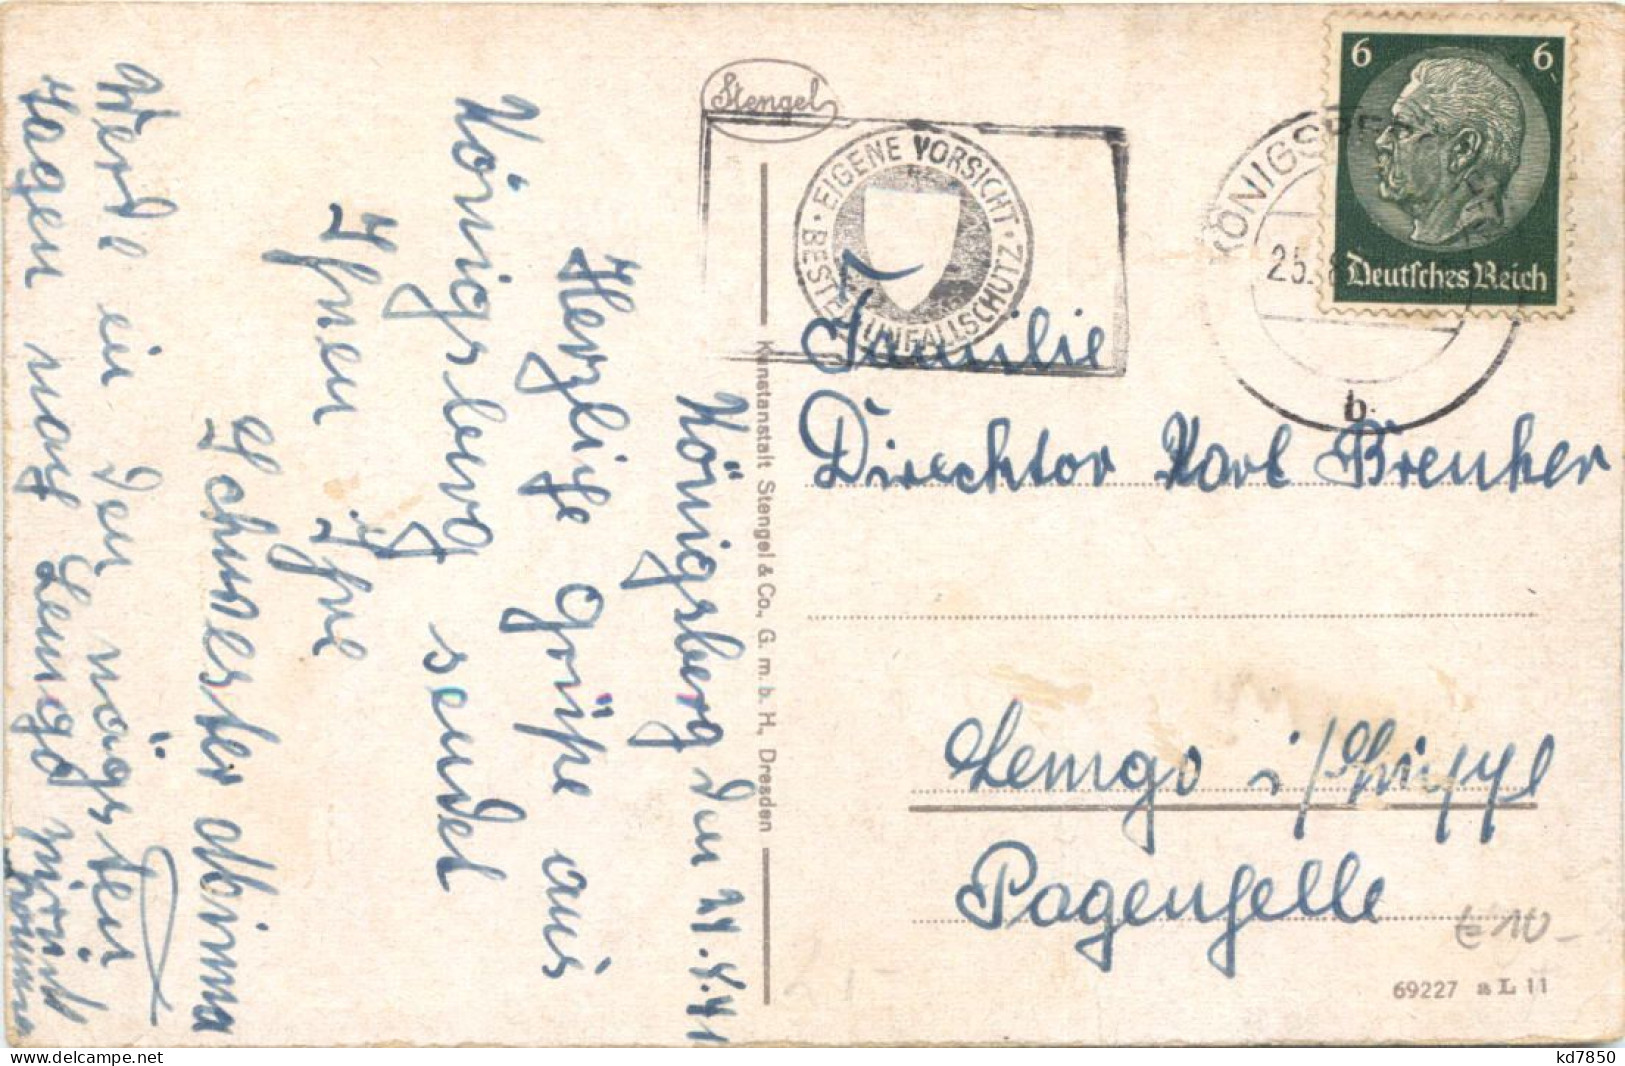 Königsberg den 24.4.41
Herzliche Grüße aus
Königsberg sendet
Ihnen Ihre
Schwester
Werde in den nächsten
Tagen nach Lemgo zurück
kommen
Stengel
EIGENE VORSICHT · BESTER UNFALLSCHUTZ ·
KÖNIGSBERG
25.
b
6 6
Deutsches Reich
Kunstanstalt Stengel & Co., G. m. b. H., Dresden
Familie
Direcktor Karl Brenker
Lemgo i/Lippe
Pagenhelle
10.-
69227 a L 11
kd7850